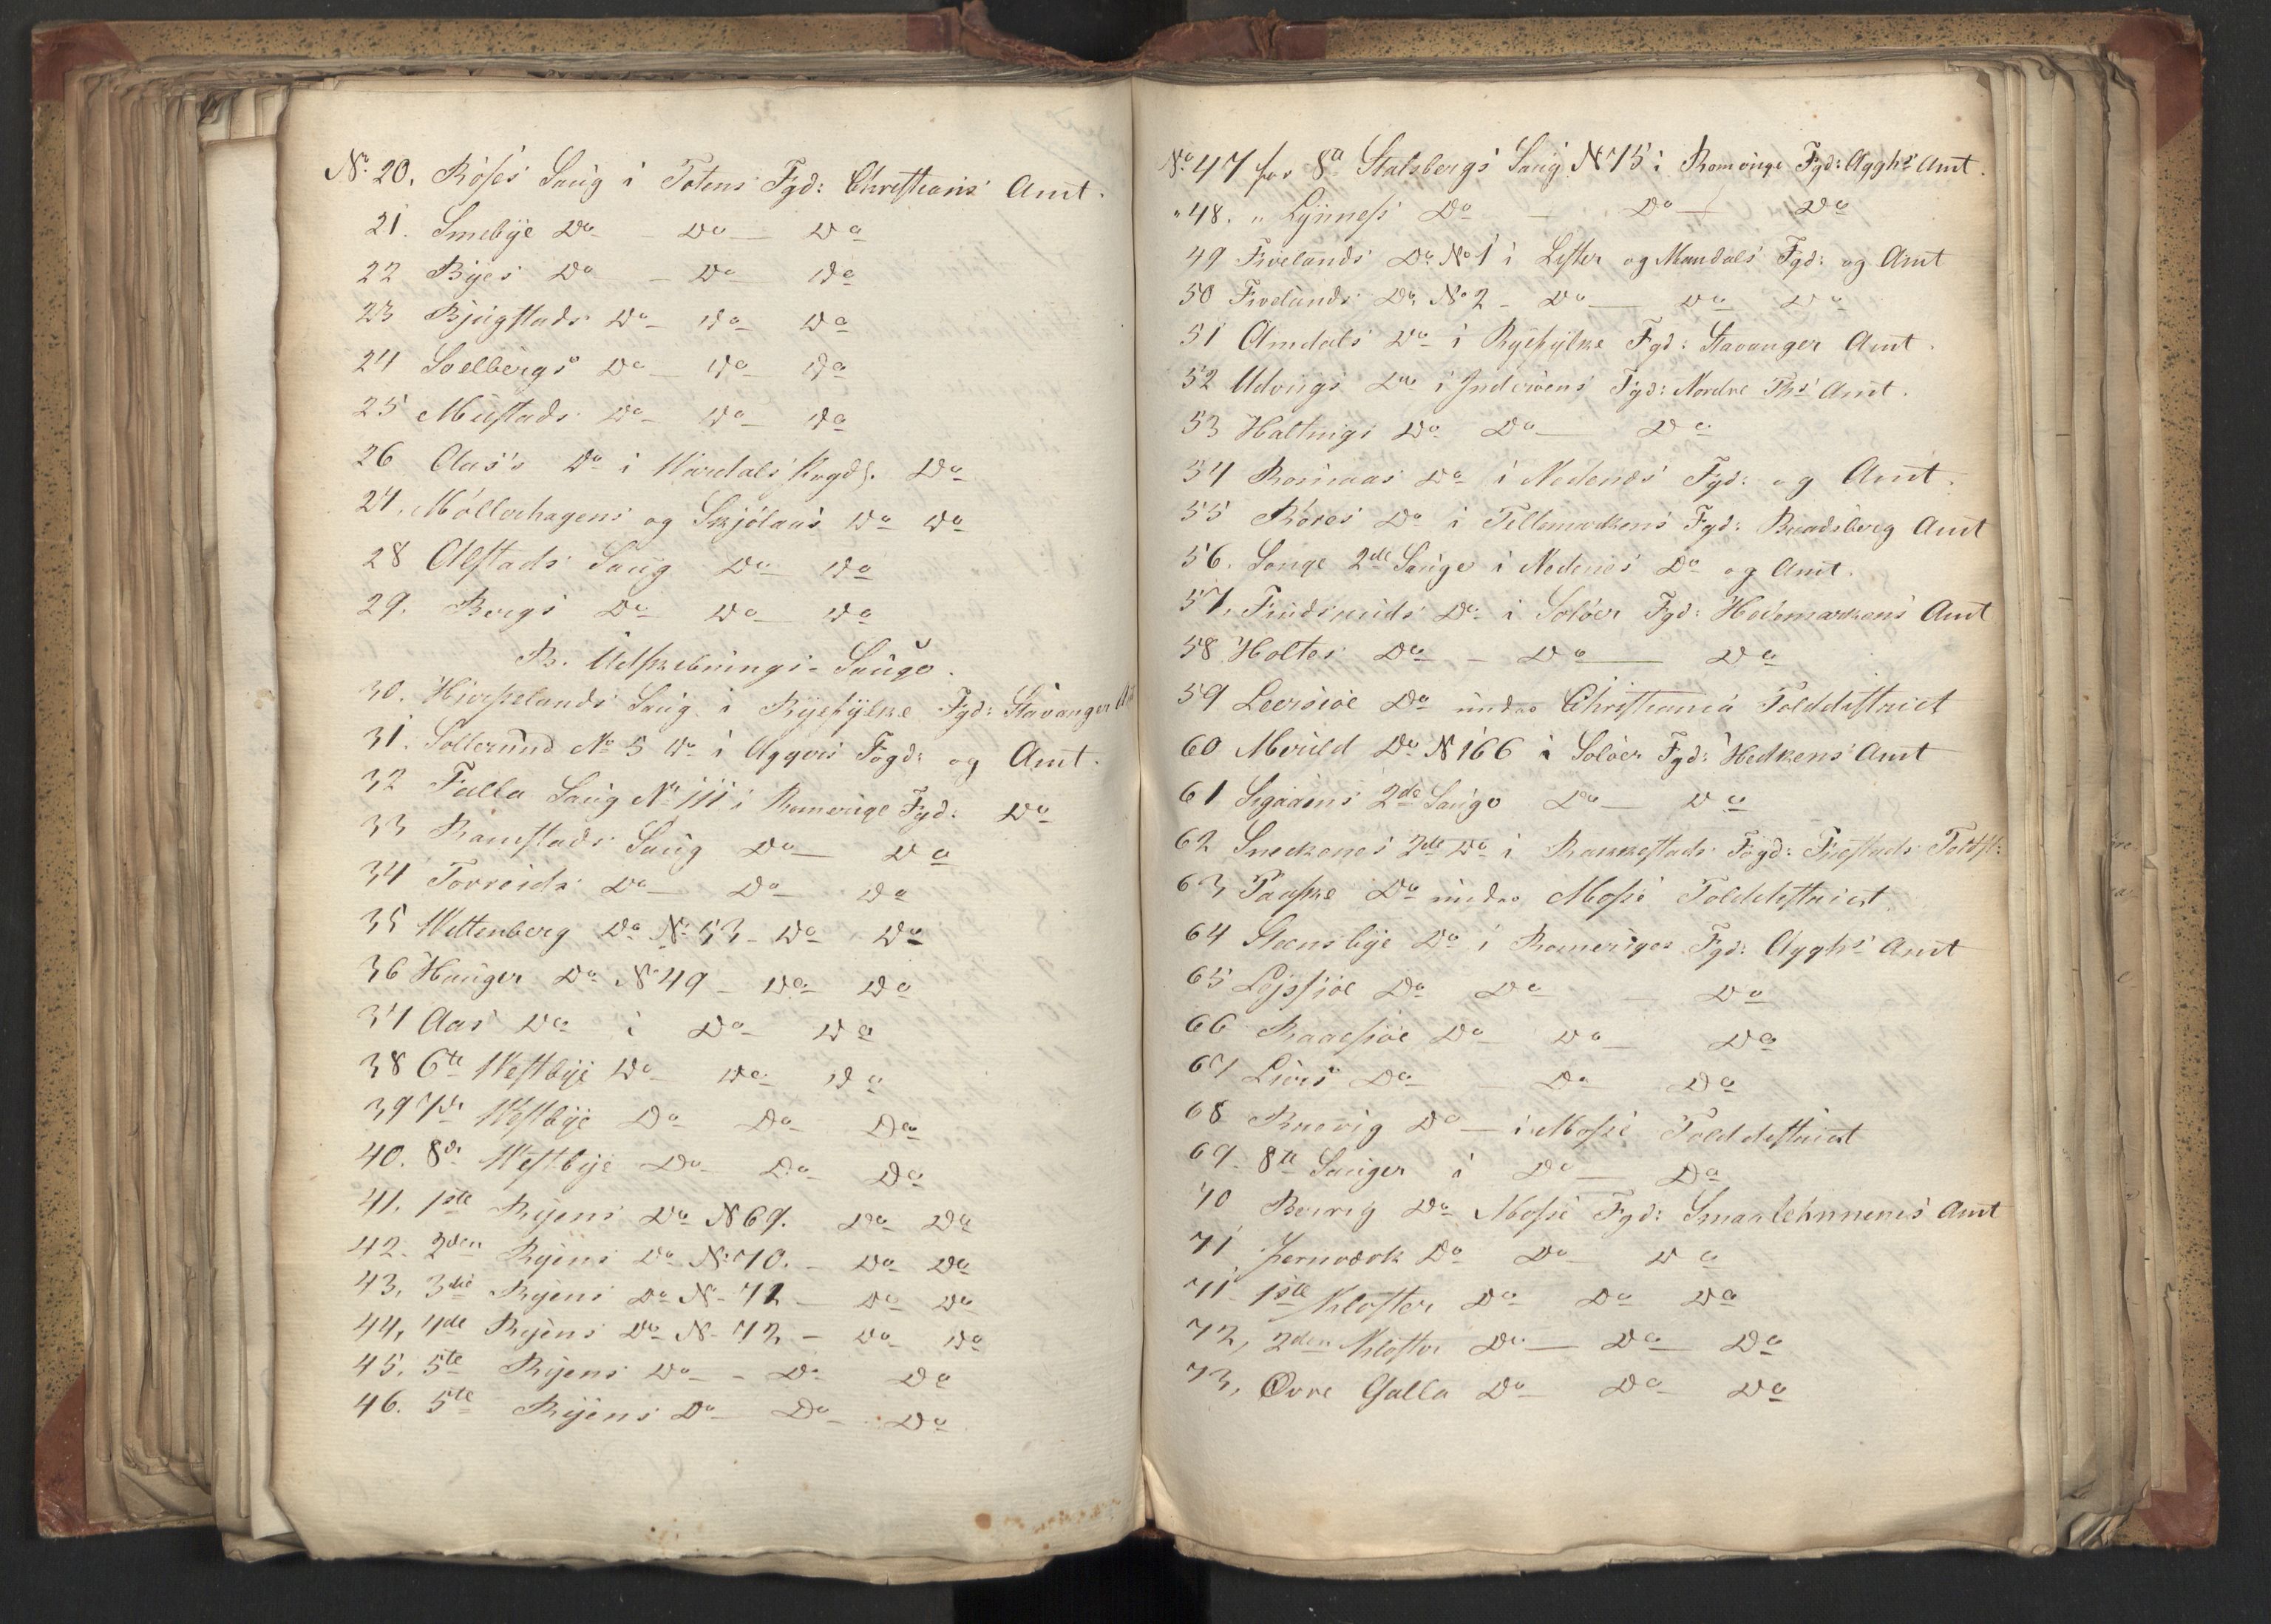 No. 20. Röses Saug i Totens Fgd: Christians Amt.
21. Smebÿe Do - Do - Do
22 Bÿes Do - Do Do
23 Bjugstads Do - Do - Do
24 Soelbergs Do - Do - Do
25 Mustads Do - Do - Do
26 Aas's Do i Wardals Do
27. Möllerhagens og Skjölaas Do Do
28 Alstads Saug Do Do
29. Bergs Do Do - Do
B. Udskibnings-Sauge.
30. Hjorpelands Saug i Rÿefÿlke Fgd: Stavanger
31. Sollerund No 5 Do i Aggers Fogd: og Amt.
32 Falla Saug No 111 i Romerige Fgd: Do
33 Ramstads Saug Do - Do
34 Torreids Do - Do - Do
35 Wittenberg Do No 53 - Do Do
36 Hauger Do No 49 - Do Do
37 Aas Do i Do - Do
38 6te Westbÿe Do - Do - Do
39 7de Westbÿe Do Do - Do
40. 8de Westbÿe Do - Do - Do
41. 1ste Rÿens Do No 69. Do Do
42. 2den Rÿens Do No 70. - Do Do
43. 3die Rÿens Do No 71 - Do Do
44, 4de Rÿens Do No 72 - Do Do
45. 5te Rÿens Do - - Do Do
46. 5te Rÿens Do - Do - Do
No. 47 for 8de Stalsbergs Saug No 75 i Romerige Fgd: Agghs Amt.
" 48. " Lÿnness Do - Do - Do
49 Fivelands Do No 1 i Lister og Mandals Fgd: og Amt
50 Fivelands Do No 2 - Do - Do Do
51 Omdals Do i Rÿefÿlke Fgd: Stavanger Amt.
52 Udvngs Do i Inderöens Fgd: Nordre Ths Amt.
53 Haltnigs Do Do - Do
54 Rosmaas Do i Nedenes Fgd: og Amt.
55 Röres Do i Tellemarkens Fgd: Bradsberg Amt
56. Songe 2de Sauge i Nedenes Do og Amt.
57. Do i Solöer Fgd: Hedemarkens Amt
58 Holtes Do - Do - Do
59 Leersöe Do under Christiania Tolddistrict
60 Mveuld Do No 166 i Solöer Fgd: Hedkens Amt
61 2de Sauge Do - Do
62 Sneckenes 2de Do i Rakkestads Fogd: Frestads
63 Paaske Do under Mosse Tolddistrict
64 Steensbÿe Do i Romeriges Fgd: Aggh's Amt
65 Löjssjöe Do Do - Do
66 Raaesjöe Do - Do - Do
67 Do - Do Do
68 Brevig Do - i Mosse Tolddistrict
69 - 8te Sauger i Do - Do
70 Brevig Do Mosse Fgd: Smaalehnnenes Amt
71, Jernværk Do Do - Do
71 - 1ste Kloster Do - Do Do
72, 2den Kloster Do - Do - Do
73, Övre Galla Do - Do - Do